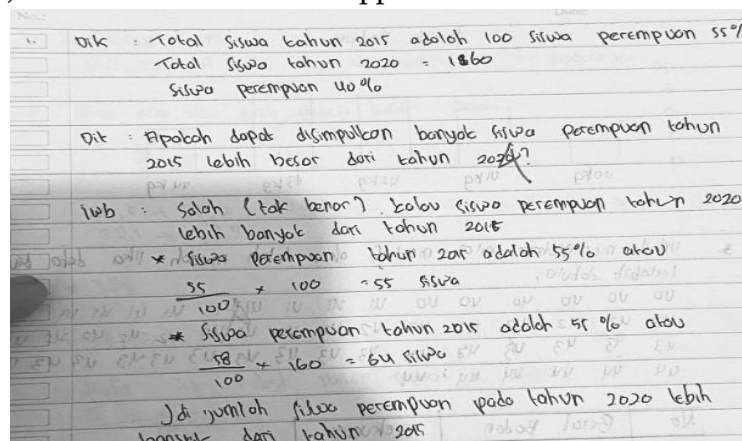 1. Dik : Total siswa tahun 2015 adalah 100 siswa perempuan 55%
Total siswa tahun 2020 = 160
siswa perempuan 40%
Dit : Apakah dapat disimpulkan banyak siswa perempuan tahun
2015 lebih besar dari tahun 2020?
jwb : Salah (tak benar). kalau siswa perempuan tahun 2020
lebih banyak dari tahun 2015
* siswa perempuan tahun 2015 adalah 55% atau
55/100 × 100 = 55 siswa
* siswa perempuan tahun 2015 adalah 55% atau
58/100 × 160 = 64 siswa
Jdi jumlah siswa perempuan pada tahun 2020 lebih
banyak dari tahun 2015